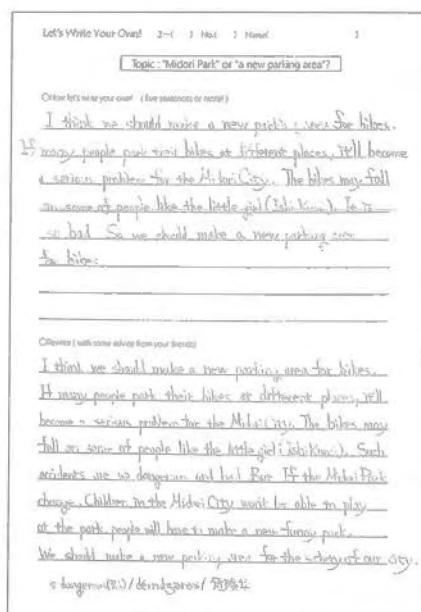 Let's Write Your Own! 2-( ) No.( ) Name( )
Topic : "Midori Park" or "a new parking area"?
Now let's write your own! ( five sentences or more! )
I think we should make a new for bikes.
If many people park their bikes at different places, it'll become
a serious problem for the Midori City. The bikes may fall
on some of people like the little girl It is
so bad So we should make a new parking area
for bikes.
Rewrite ( with some advice from your friends)
I think we should make a new parking area for bikes.
If many people park their bikes at different places, it'll
become a serious problem for the Midori City. The bikes may
fall on some of people like the little girl Such
accidents are so and bad But If the Midori Park
change, Children in the Midori City won't be able to play
at the park. people will have to make a new funny park.
We should make a new parking area for the of our city.